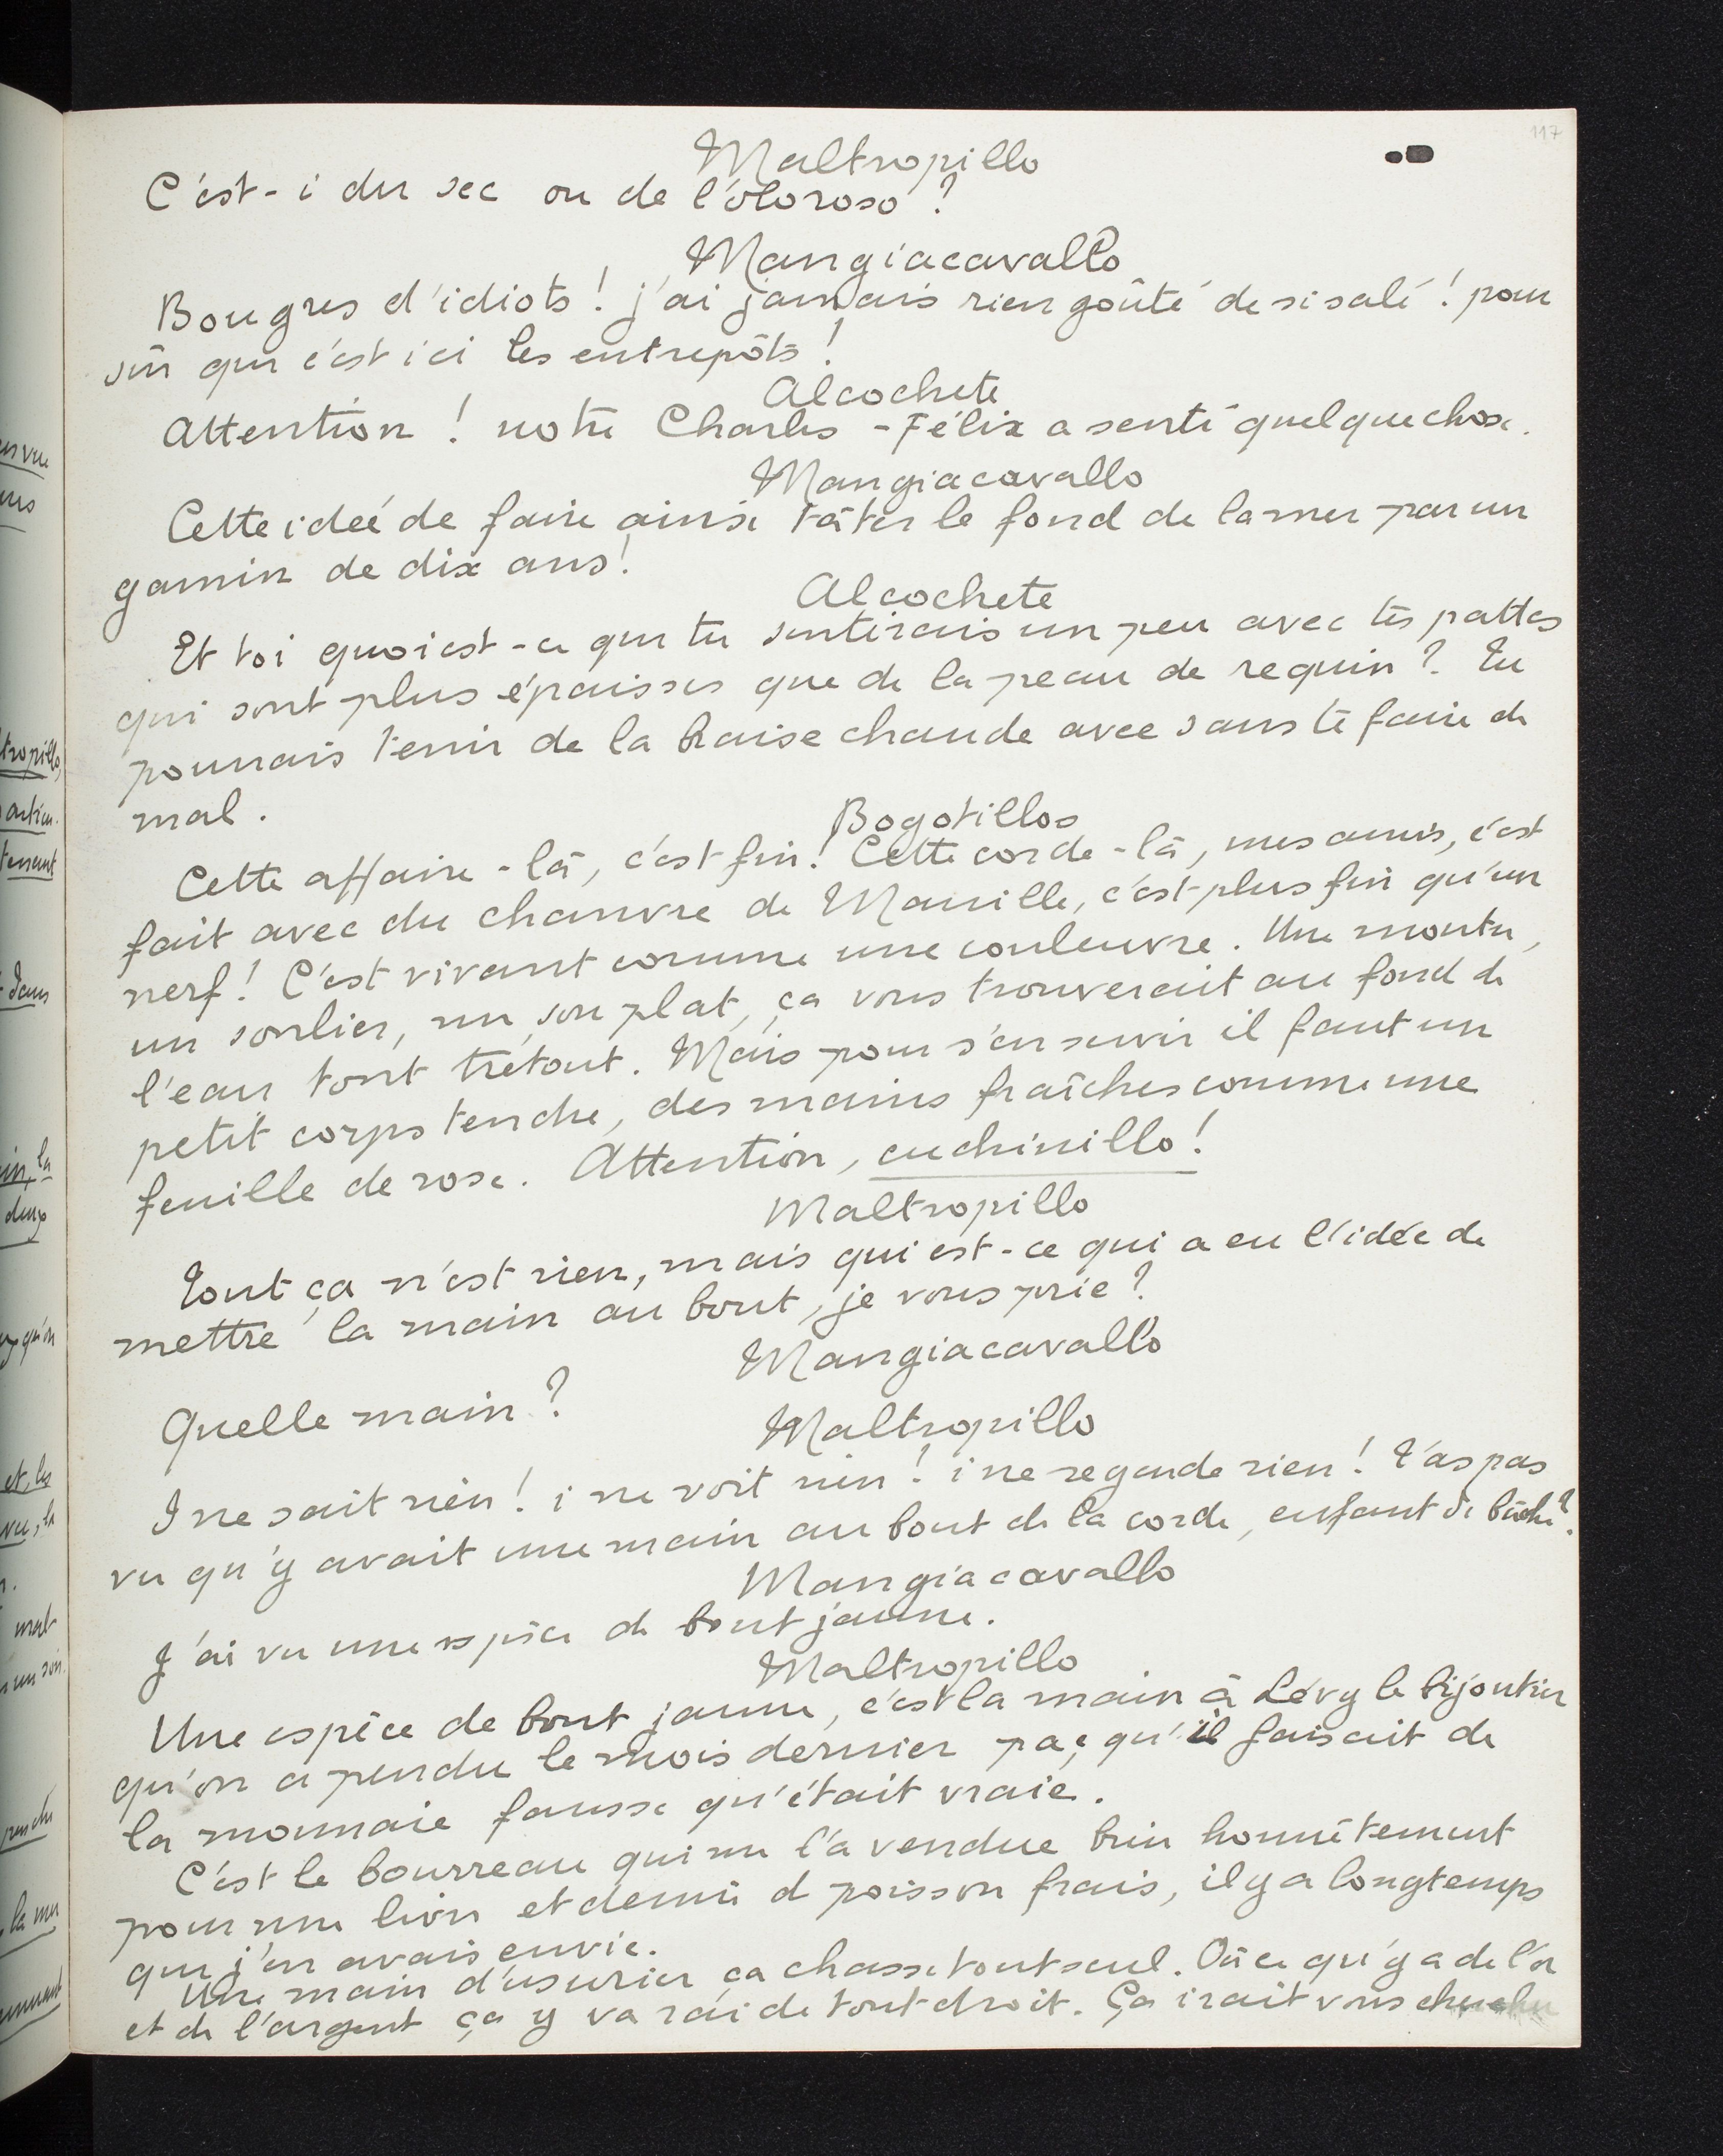 117
Maltropillo
C'est-i du sec ou de l'oloroso ?
Mangiacavallo
Bougres d'idiots ! j'ai jamais rien goûté de si salé ! pour
sûr que c'est ici les entrepôts !
Alcochete
Attention ! notre Charles-Félix a senti quelque chose.
Mangiacavallo
Cette idée de faire ainsi tâter le fond de la mer par un
gamin de dix ans !
Alcochete
Et toi quoi est-ce que tu sentirais un peu avec tes pattes
qui sont plus épaisses que de la peau de requin ? Tu
pourrais tenir de la braise chaude avec sans te faire de
mal.
Bogotillos
Cette affaire-là, c'est fin ! Cette corde-là, mes amis, c'est
fait avec du chanvre de Manille, c'est plus fin qu'un
nerf ! C'est vivant comme une couleuvre. Une montre,
un soulier, un sou plat, ça vous trouverait au fond de
l'eau tout trétout. Mais pour s'en servir il faut un
petit corps tendre, des mains fraîches comme une
feuille de rose. Attention, cuchinillo !
Maltropillo
Tout ça n'est rien, mais qui est-ce qui a eu l'idée de
mettre la main au bout, je vous prie ?
Mangiacavallo
Quelle main ?
Maltropillo
I ne sait rien ! i ne voit rien ! i ne regarde rien ! T'as pas
vu qu'y avait une main au bout de la corde, enfant de bûche ?
Mangiacavallo
J'ai vu une espèce de bout jaune.
Maltropillo
Une espèce de bout jaune, c'est la main à Lévy le bijoutier
qu'on a pendu le mois dernier paç qu'il faisait de
la monnaie fausse qu'était vraie.
C'est le bourreau qui me l'a vendue bien honnêtement
pour une livre et demie d poisson frais, il y a longtemps
que j'en avais envie.
Une main d'usurier ça chasse tout seul. Où ce qu'y a de l'or
et de l'argent ça y va raide tout droit. Ça irait vous chercher